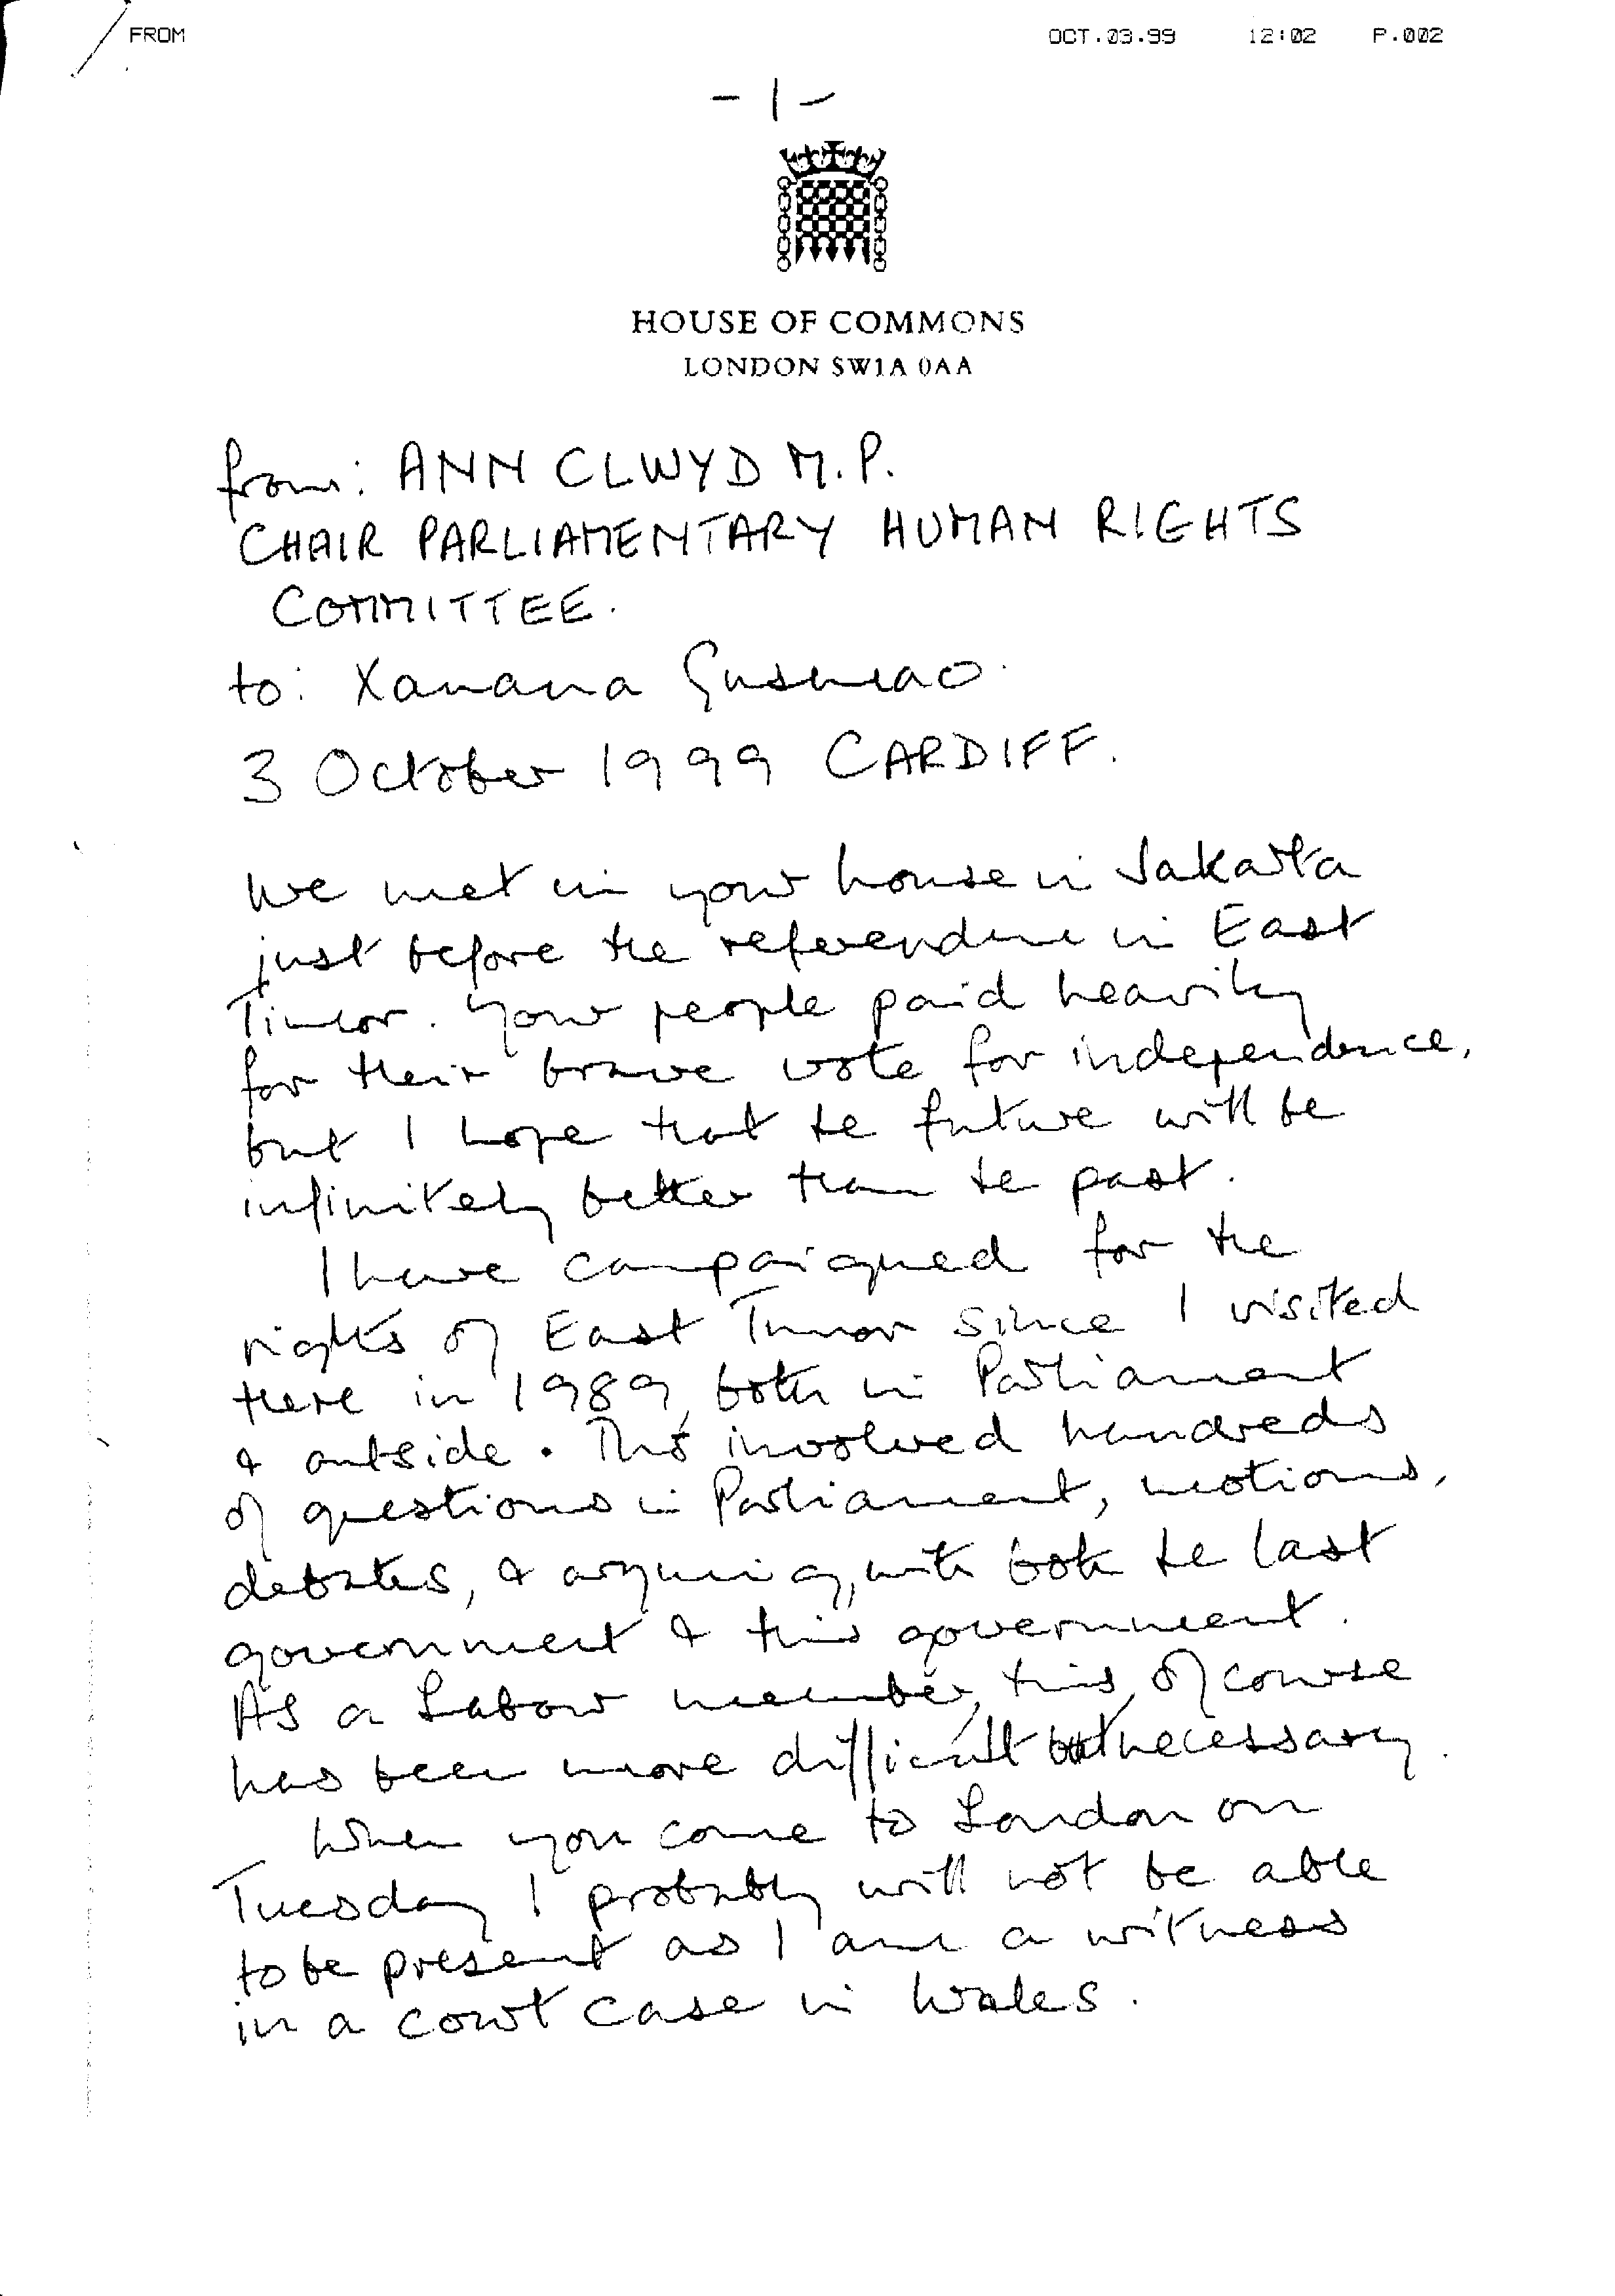 FROM OCT.03.99 12:02 P.002
- 1 -
HOUSE OF COMMONS
LONDON SW1A 0AA
from: ANN CLWYD M.P.
CHAIR PARLIAMENTARY HUMAN RIGHTS
COMMITTEE.
to: Xanana Gusmao.
3 October 1999 CARDIFF.
We met in your house in Jakarta
just before the referendum in East
Timor. Your people paid heavily
for their brave vote for independence,
but I hope that the future will be
infinitely better than the past.
I have campaigned for the
rights of East Timor since I visited
there in 1989, both in Parliament
& outside. This involved hundreds
of questions in Parliament, motions,
debates, & arguing, with both the last
government & this government.
As a Labour member, this, of course
has been more difficult but necessary.
When you come to London on
Tuesday I probably will not be able
to be present as I am a witness
in a court case in Wales.